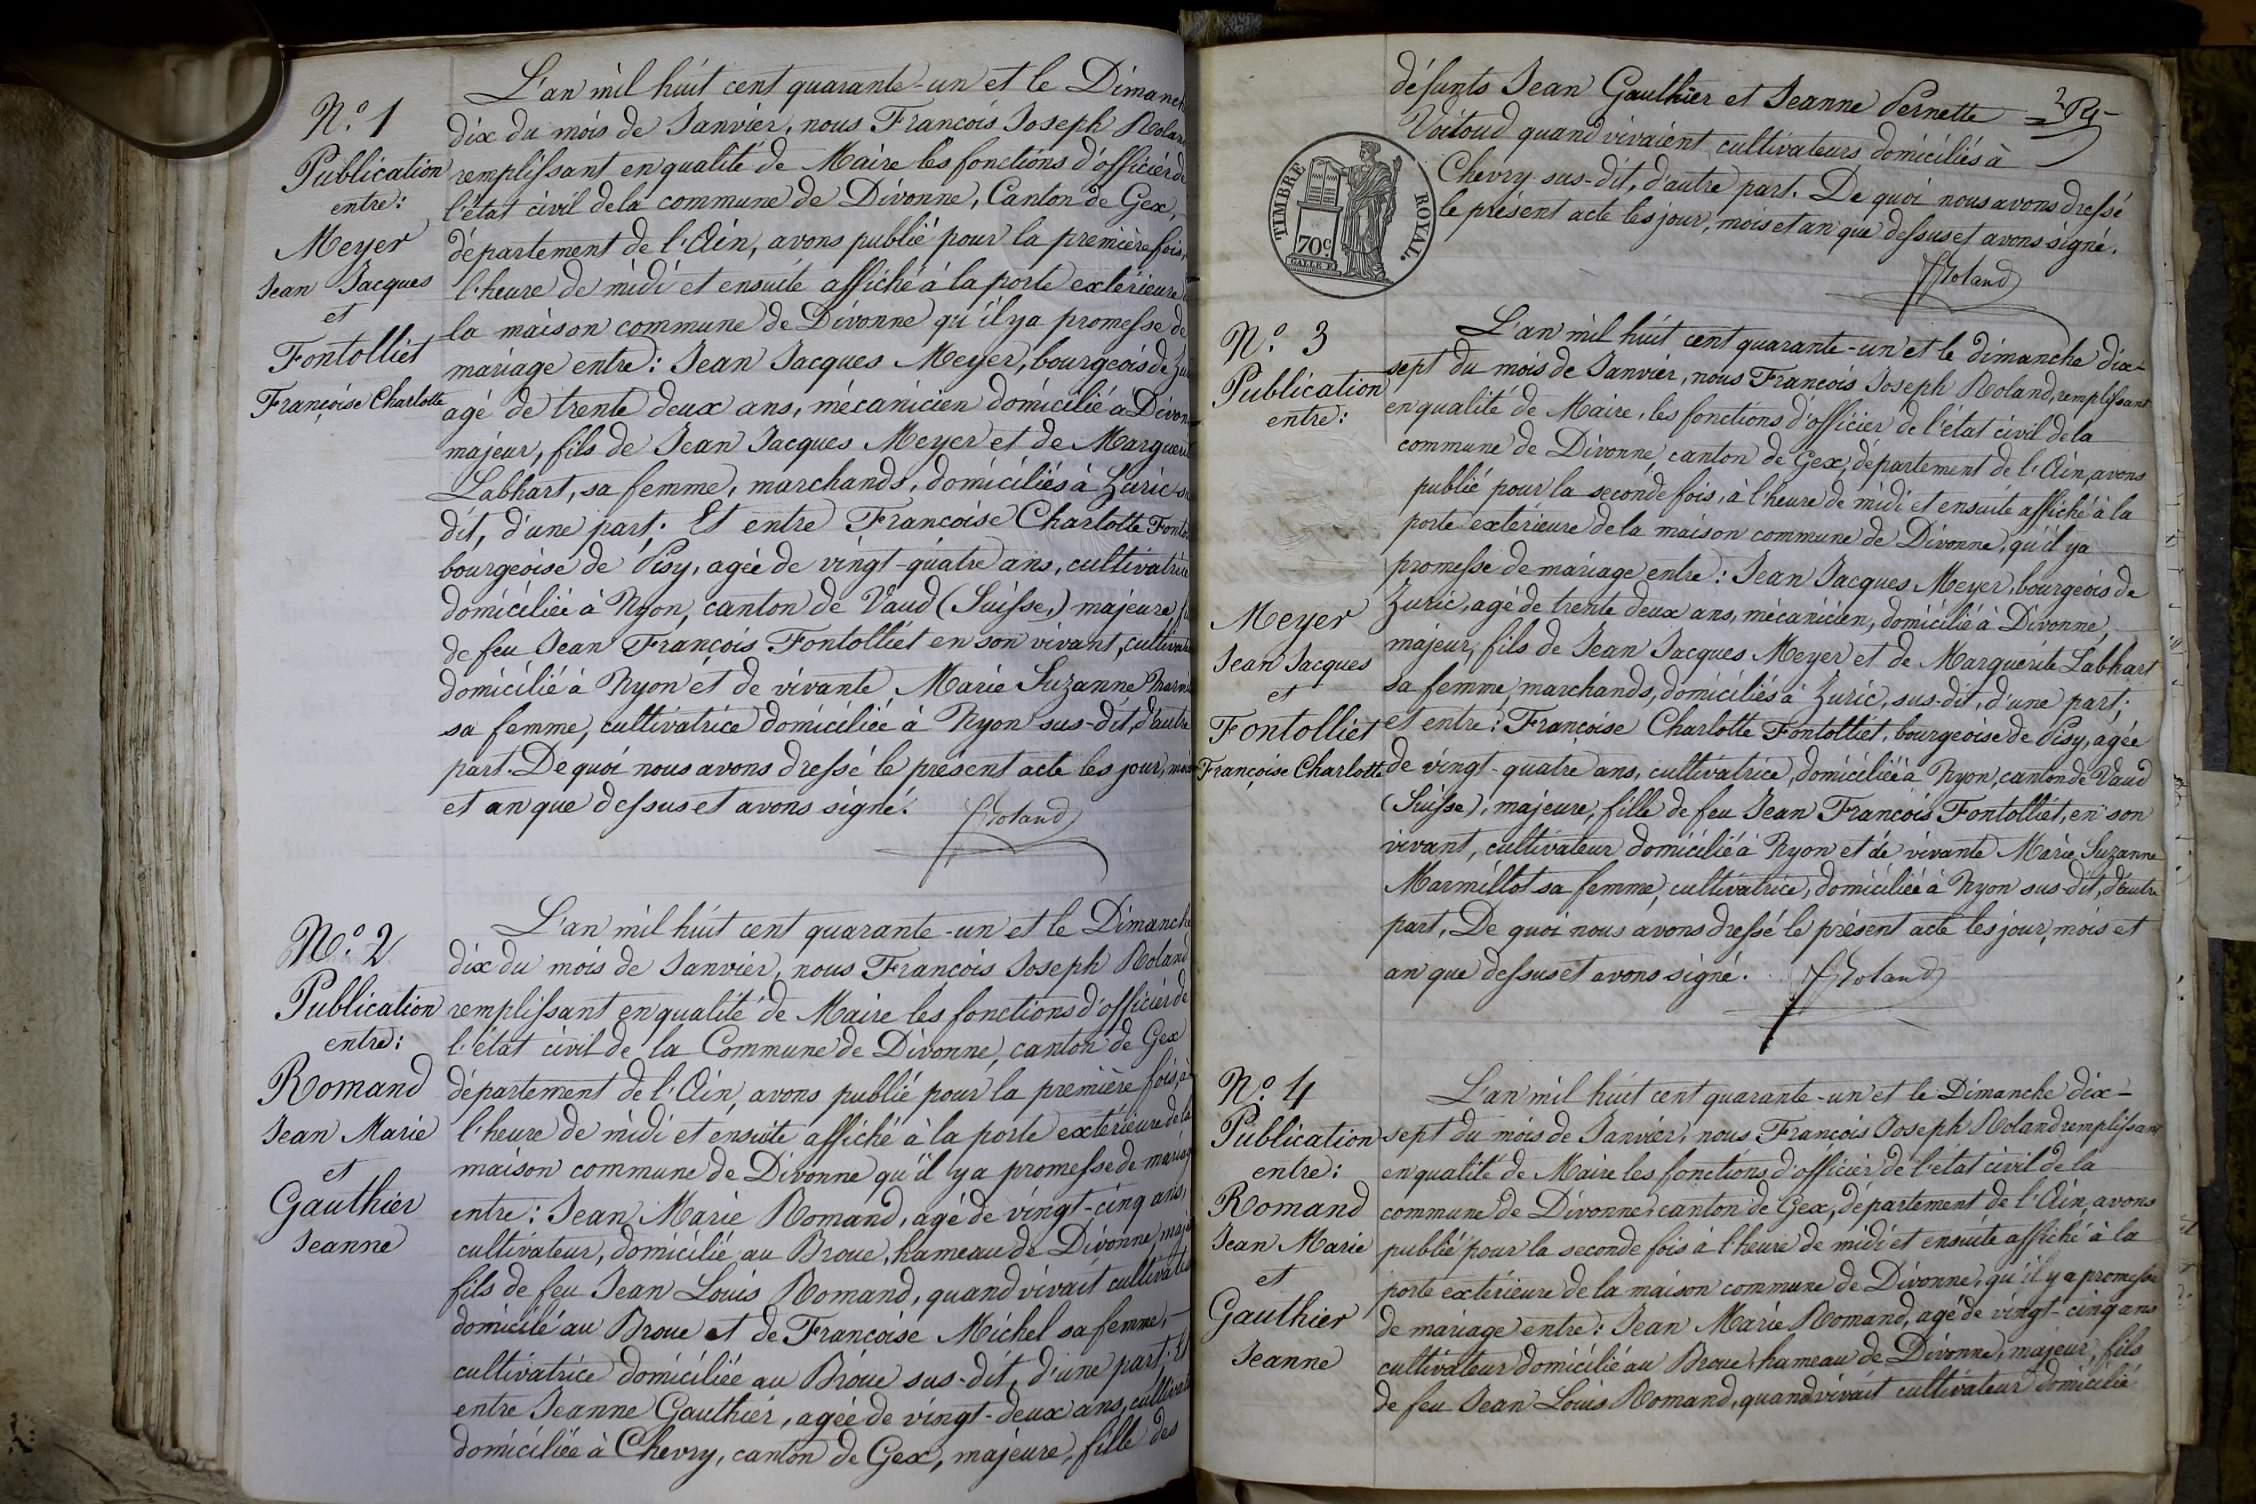 N.o 1
Publication
entre:
Meyer
Jean Jacques
et
Fontolliet
Françoise Charlotte
L'an mil huit cent quarante-un et le Dimanch
dix du mois de Janvier, nous François Joseph Rolan
remplissant en qualité de Maire les fonctions d'officier de
l'état civil de la commune de Divonne, Canton de Gex,
département de l'Ain, avons publié pour la première fois,
l'heure de midi et ensuite affiché à la porte extérieure
la maison commune de Divonne qu'il y a promesse de
mariage entre: Jean Jacques Meyer, bourgeois de Zu
agé de trente deux ans, mécanicien domicilié à Divon
majeur, fils de Jean Jacques Meyer et de Marguerit
Labhart, sa femme, marchands, domiciliés à Zuric su
dit, d'une part; Et entre Françoise Charlotte Fonto
bourgeoise de Pisy, agée de vingt-quatre ans, cultivatrice
domiciliée à Nyon, canton de Vaud (Suisse,) majeure fi
de feu Jean François Fontolliet en son vivant, cultivat
domicilié à Nyon et de vivante Marie Suzanne Marmi
sa femme, cultivatrice domiciliée à Nyon sus-dit, d'autre
part. De quoi nous avons dressé le présent acte les jour, moi
et an que dessus et avons signé.
fRoland
N.o 2
Publication
entre:
Romand
Jean Marie
et
Gauthier
Jeanne
L'an mil huit cent quarante-un et le Dimanche
dix du mois de Janvier, nous François Joseph Roland
remplissant en qualité de Maire les fonctions d'officier de
l'état civil de la Commune de Divonne, canton de Gex
département de l'Ain, avons publié pour la première fois, à
l'heure de midi et ensuite affiché à la porte extérieure de la
maison commune de Divonne qu'il y a promesse de mariag
entre: Jean Marie Romand, agé de vingt-cinq ans,
cultivateur, domicilié au Broue, hameau de Divonne, maje
fils de feu Jean Louis Romand, quand vivait cultivateu
domicilé au Broue et de Françoise Michel sa femme,
cultivatrice domiciliée au Broue sus-dit, d'une part. Et
entre Jeanne Gauthier, agée de vingt-deux ans, cultivat
domiciliée à Chevry, canton de Gex, majeure, fille des
défunts Jean Gaulthier et Jeanne Pernette
Voitoud quand vivaient cultivateurs domiciliés à
Chevry sus-dit, d'autre part. De quoi nous avons dressé
le présent acte les jour, mois et an que dessus et avons signé.
fRoland
TIMBRE ROYAL.
70c
N.o 3
Publication
entre:
Meyer
Jean Jacques
et
Fontolliet
Françoise Charlotte
L'an mil huit cent quarante-un et le dimanche dix-
sept du mois de Janvier, nous François Joseph Roland, remplissant
en qualité de Maire, les fonctions d'officier de l'état civil de la
commune de Divonne canton de Gex, département de l'Ain, avons
publié pour la seconde fois, à l'heure de midi et ensuite affiché à la
porte extérieure de la maison commune de Divonne, qu'il y a
promesse de mariage entre: Jean Jacques Meyer, bourgeois de
Zuric, agé de trente deux ans, mécanicien, domicilié à Divonne,
majeur, fils de Jean Jacques Meyer et de Marguerite Labhart
sa femme, marchands, domiciliés à Zuric, sus-dit, d'une part;
et entre: Françoise Charlotte Fontolliet, bourgeoise de Pisy, agée
de vingt-quatre ans, cultivatrice, domiciliée à Nyon, canton de Vaud
(Suisse), majeure, fille de feu Jean François Fontolliet, en son
vivant, cultivateur domicilié à Nyon et de vivante Marie Suzanne
Marmillot sa femme, cultivatrice, domiciliée à Nyon sus-dit, d'autre
part, De quoi nous avons dressé le présent acte les jour, mois et
an que dessus et avons signé.
fRoland
N.o 4
Publication
entre:
Romand
Jean Marie
et
Gauthier
Jeanne
L'an mil huit cent quarante-un et le Dimanche dix-
sept du mois de Janvier, nous François Joseph Roland remplissant
en qualité de Maire les fonctions d'officier de l'état civil de la
commune de Divonne, canton de Gex, département de l'Ain, avons
publié pour la seconde fois à l'heure de midi et ensuite affiché à la
porte extérieure de la maison commune de Divonne, qu'il y a promesse
de mariage entre: Jean Marie Romand, agé de vingt-cinq ans
cultivateur domicilié au Broue, hameau de Divonne, majeur, fils
de feu Jean Louis Romand, quand vivait cultivateur domicilié